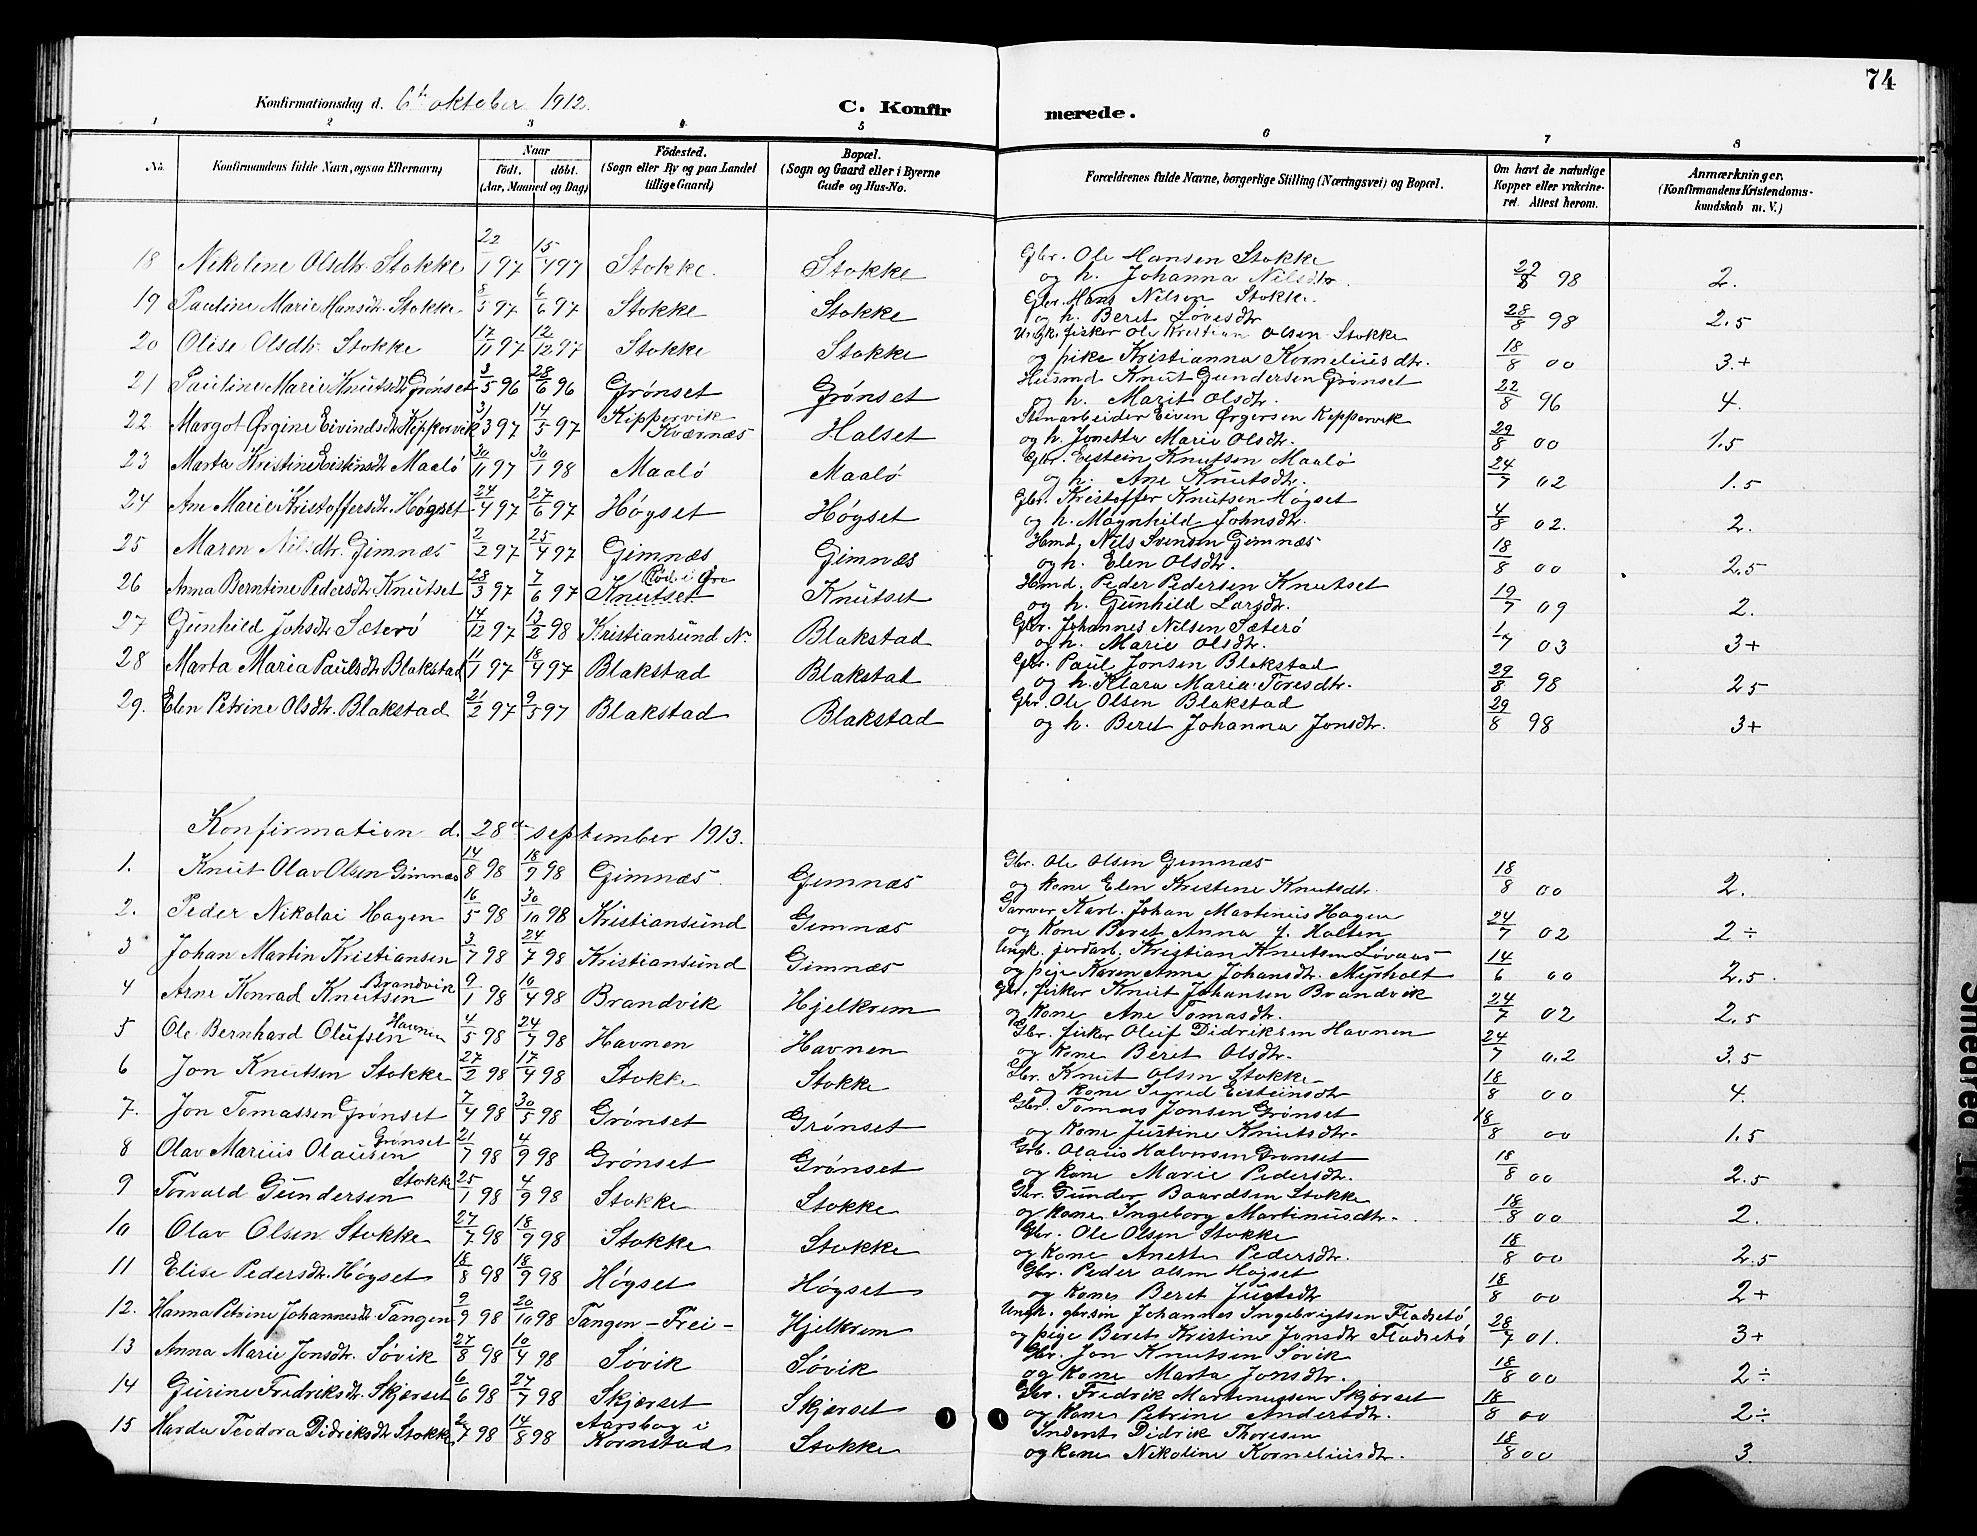 74
Konfirmationsdag d. 6te oktober 1912.
C. Konfirmerede.
1 2 3 4 5 6 7 8
No. Konfirmandens fulde Navn, ogsaa Efternavn) Naar født. døbt. (Aar, Maaned og Dag) Fødested. (Sogn eller By og paa Landet tillige Gaard) Bopæl. (Sogn og Gaard eller i Byerne Gade og Hus-No. Forældrenes fulde Navne, borgerlige Stilling (Næringsvei) og Bopæl. Om havt de naturlige Kopper eller vakcineret. Attest herom. Anmærkninger. (Konfirmandens Kristendomskundskab m. V.)
18 Nikoline Olsdtr. Stokke 22/1 97 15/4 97 Stokke Stokke Gbr. Ole Hansen Stokke
og h. Johanna Nilsdtr. 29/8 98 2.
19 Pauline Marie Hansdtr. Stokke 8/5 97 6/6 97 Stokke Stokke Gbr. Hans Nilsen Stokke
og h. Beret Lovisdtr 28/8 98 2.5
20 Olise Olsdtr. Stokke 17/11 97 12/12 97 Stokke Stokke Ungk. fisker Ole Kristian Olsen Stokke
og pike Kristianna Korneliusdtr. 18/8 00 3+
21 Pauline Marie Knutsdtr Grønset 3/5 96 28/6 96 Grønset Grønset Husmd Knut Gundersen Grønset
og h. Marit Olsdtr. 22/8 96 4.
22 Margot Ørgine Eivindsdtr Kippervik 3/3 97 14/5 97 Kippervik Kværnæs Halset Stenarbeider Eiven Ørgersen Kippervik
og h. Jonetta Marie Olsdtr. 29/8 00 1.5
23 Marta Kristine Eistinsdtr Maalø 30/11 97 30/1 98 Maalø Maalø Gbr. Eistein Knutsen Maalø
og h. Ane Knutsdtr. 24/7 02 1.5
24 An Marie Kristoffersdtr. Høgset 24/4 97 27/6 97 Høgset Høgset Gbr. Kristoffer Knutsen Høgset
og h. Magnhild Johnsdtr. 4/8 02. 2.
25 Maren Nilsdtr. Gimnæs 2/2 97 25/4 97 Gimnæs Gimnæs Hmd. Nils Svensen Gimnæs
og h. Elen Olsdtr. 18/8 00 2.5
26 Anna Berntine Pedersdtr Knutset 28/3 97 7/6 97 Rød i Øre Knutset Knutset Hmd. Peder Pedersen Knutset
og h. Gunhild Larsdtr. 19/7 09 2.
27 Gunhild Johsdtr Sæterø 14/12 97 13/2 98 Kristiansund N. Blakstad Gbr. Johannes Nilsen Sæterø
og h. Marie Olsdtr. 1/7 03 3+
28 Marta Maria Paulsdtr Blakstad 11/1 97 18/4 97 Blakstad Blakstad Gbr. Paul Jonsen Blakstad
og h. Klara Maria Toresdtr. 29/8 98 25
29. Elen Petrine Olsdtr. Blakstad 21/2 97 9/5 97 Blakstad Blakstad Gbr. Ole Olsen Blakstad
og h. Beret Johanna Jonsdtr. 29/8 98 3+
Konfirmation d. 28de september 1913.
1. Knut Olav Olsen Gimnæs 14/8 98 18/9 98 Gimnæs Gimnæs Gbr. Ole Olsen Gimnæs
og kone Elen Kristine Knutsdtr. 18/8 00 2.
2. Peder Nikolai Hagen 16/5 98 30/10 98 Kristiansund Gimnæs Garver Karl Johan Martinus Hagen
og kone Beret Anna J. Holten 24/7 02 2÷
3 Johan Martin Kristiansen 3/7 98 24/7 98 Kristiansund Gimnæs Ungk. jordarb. Kristian Knutsen Løvaas
og pige Karen Anna Johansdtr. Myrholt 14/6 00 2.5
4 Arne Konrad Knutsen Brandvik 9/1 98 10/4 98 Brandvik Hjelkrem Gbr. fisker Knut Johansen Brandvik
og kone Ane Tomasdtr. 24/7 02 2.5
5 Ole Bernhard Olufsen Havnen 4/5 98 24/7 98 Havnen Havnen Gbr. fisker Oluf Didriksen Havnen
og kone Beret Olsdtr. 24/7 02 3.5
6 Jon Knutsen Stokke 27/2 98 17/4 98 Stokke Stokke Gbr. Knut Olsen Stokke
og kone Sigrid Eisteinsdtr 18/8 00 4.
7. Jon Tomassen Grønset 7/4 98 30/5 98 Grønset Grønset Gbr. Tomas Jonsen Grønset
og kone Justine Knutsdtr. 18/8 00 1.5
8 Olav Marius Olausen Grønset 21/7 98 4/9 98 Grønset Grønset Grb. Olaus Halvorsen Grønset
og kone Marie Pedersdtr. 18/8 00 2.5
9 Torvald Gundersen Stokke 25/1 98 4/9 98 Stokke Stokke Gbr. Gunder Baardsen Stokke
og kone Ingeborg Martinusdtr. 18/8 00 2.
10 Olav Olsen Stokke 27/7 98 18/9 98 Stokke Stokke Gbr. Ole Olsen Stokke
og kone Anette Pedersdtr. 18/8 00 2.5
11 Elise Pedersdtr. Høgset 18/8 98 18/9 98 Høgset Høgset Gbr. Peder Olsen Høgset
og kone Beret Justsdtr 18/8 00 2+
12. Hanna Petrine Johannesdtr. Tangen 9/9 98 20/10 98 Tangen - Frei - Hjelkrem Ungk. gbr.søn Johannes Ingebrigtsen Fladsetø
og pige Beret Kristine Jonsdtr Fladsetø 28/7 01. 3+
13 Anna Marie Jonsdtr. Søvik 27/8 98 10/4 98 Søvik Søvik Gbr. Jon Knutsen Søvik
og kone Marta Jonsdtr. 18/8 00 2÷
14 Gurine Fredriksdtr. Skjerset 6/6 98 27/7 98 Skjerset Skjerset Gbr. Fredrik Martinussen Skjerset
og kone Petrine Andersdtr. 18/8 00 2÷
15 Harda Teodora Didriksdtr Stokke 2/7 98 14/8 98 Aarsbog i Kornstad Stokke Inderst Didrik Thoresen
og kone Nikoline Korneliusdtr. 18/8 00 3.